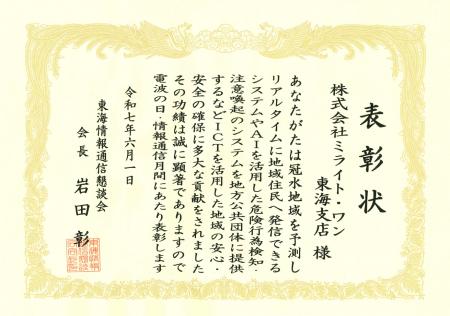 表彰状
株式会社ミライト・ワン
東海支店 様
あなたがたは冠水地域を予測し
リアルタイムに地域住民へ発信できる
システムやAIを活用した危険行為検知・
注意喚起のシステムを地方公共団体に提供
するなどICTを活用した地域の安心・
安全の確保に多大な貢献をされました
その功績は誠に顕著でありますので
電波の日・情報通信月間にあたり表彰します
令和七年六月一日
東海情報通信懇談会
会長 岩田 彰